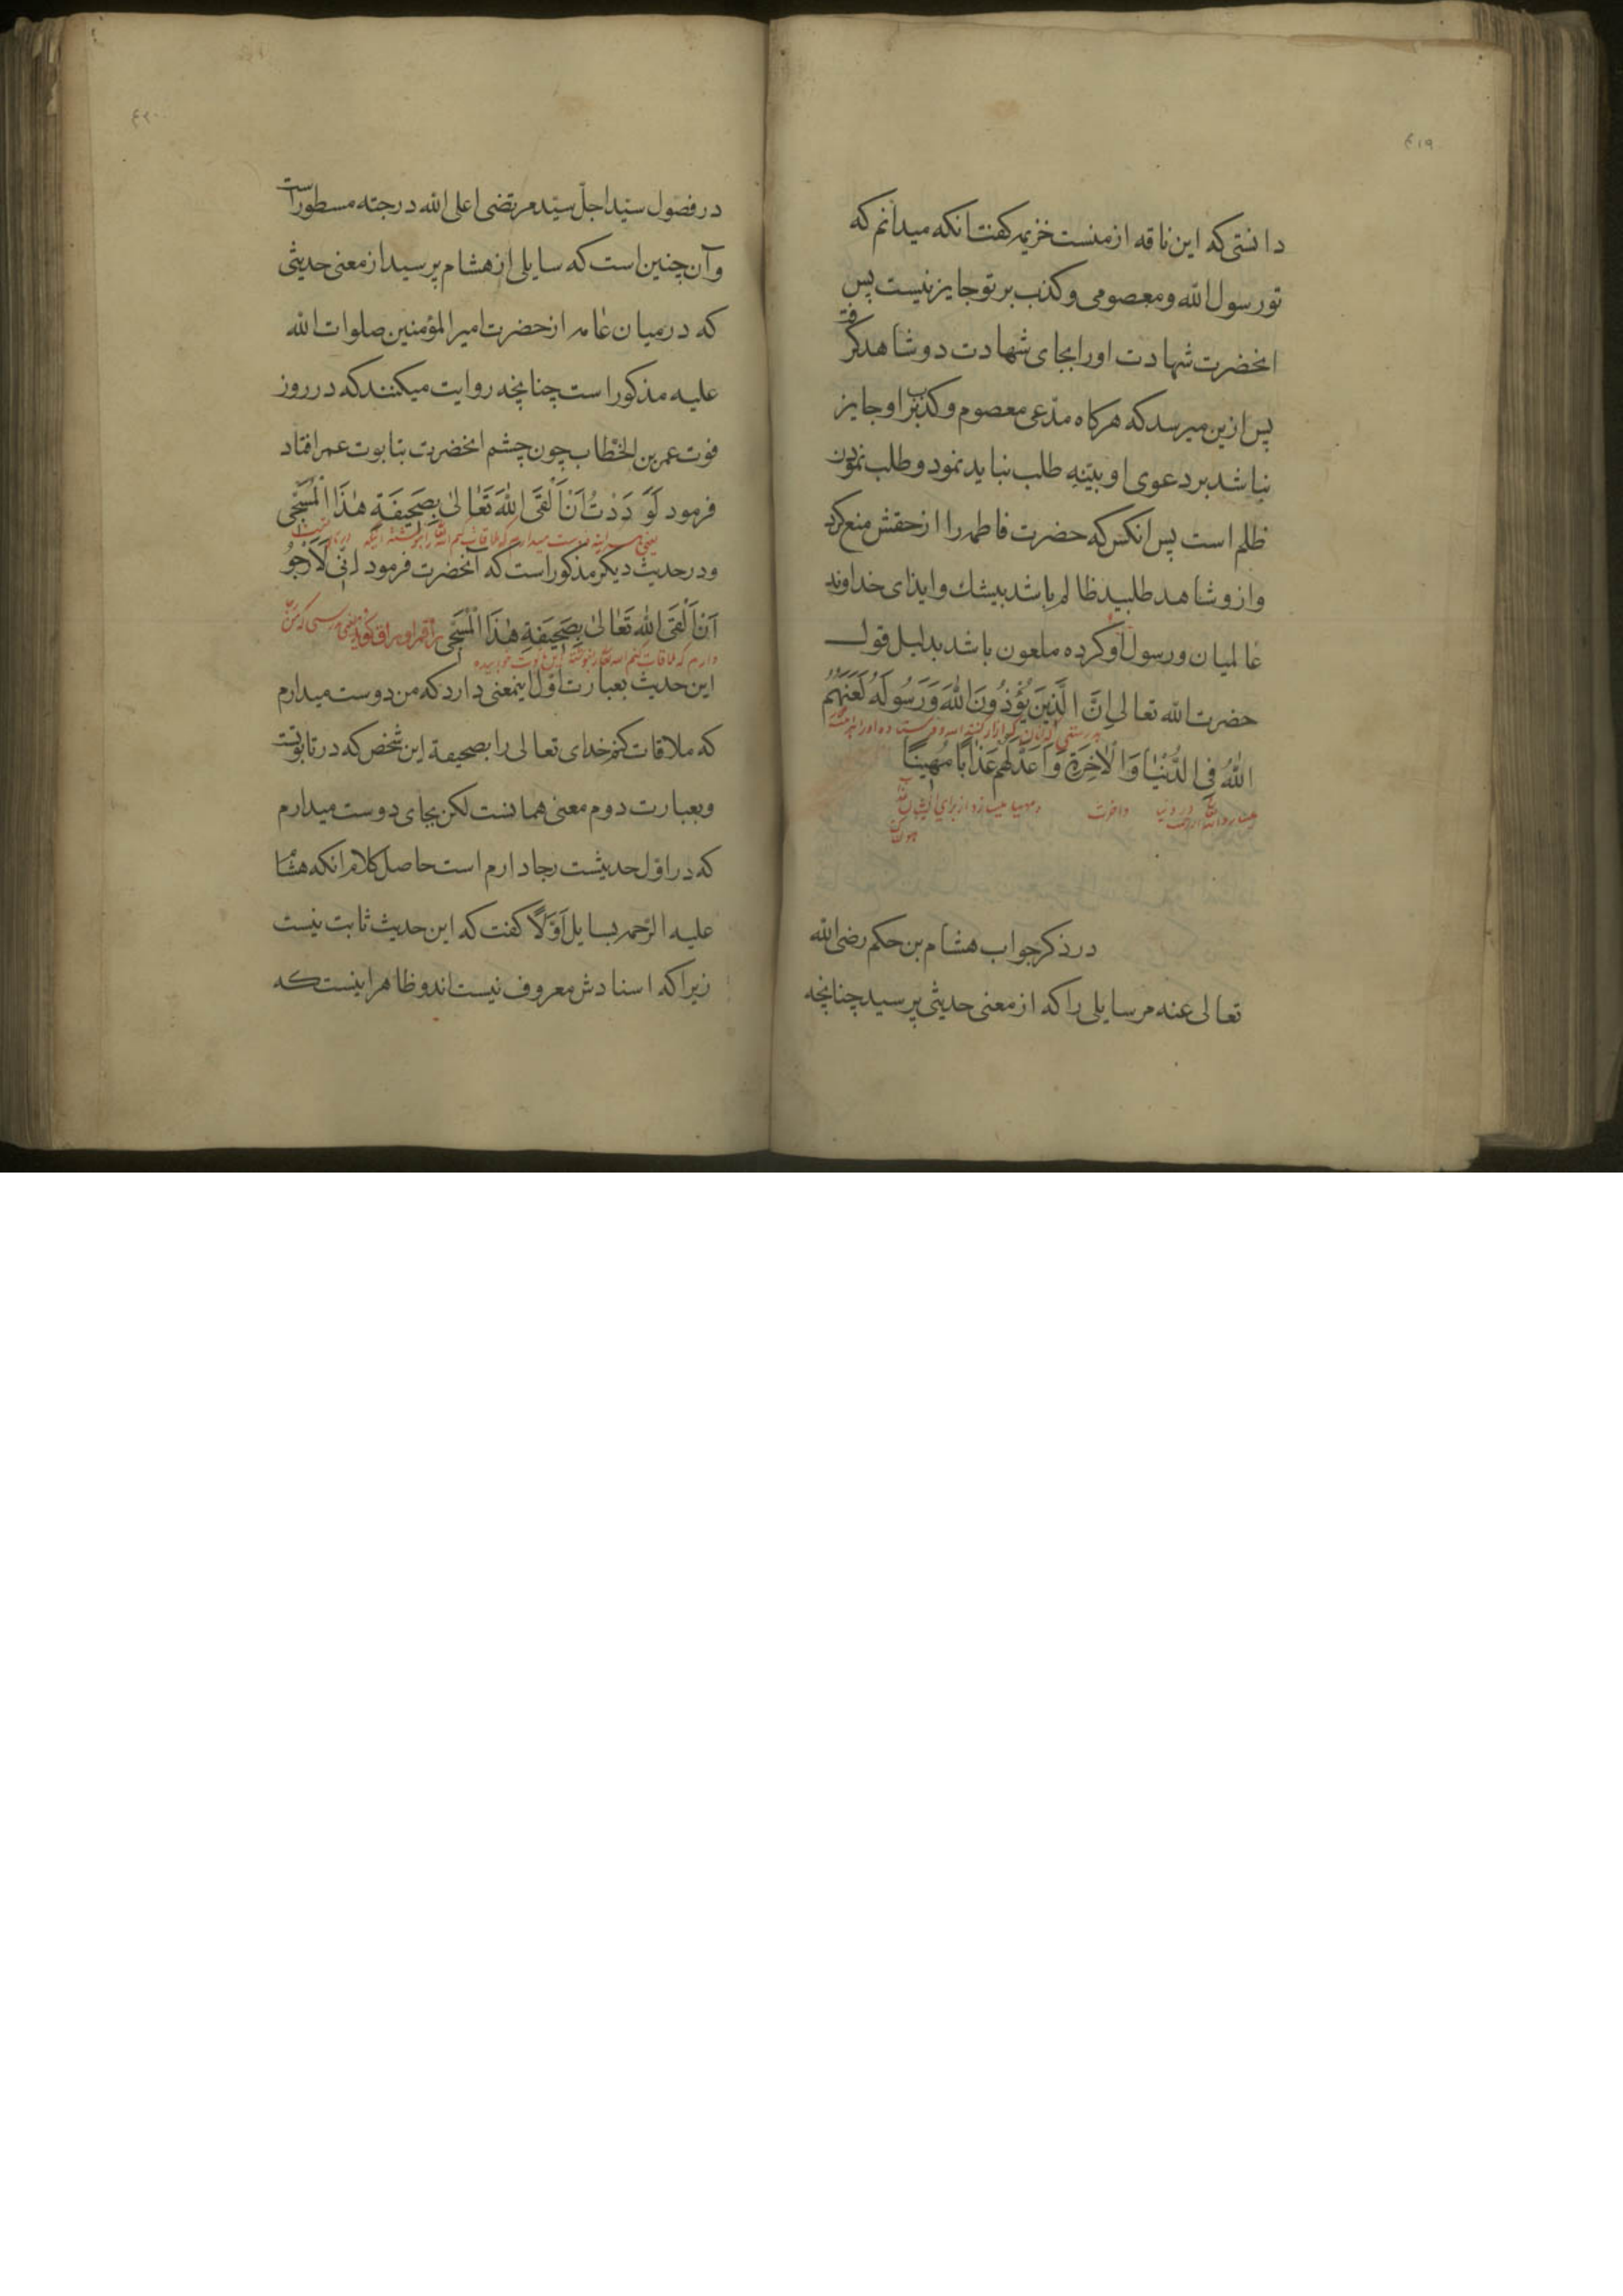 ۴۱۹
دانستی که این ناقه از منست خزیمه کفت انکه میدانم که
تو رسول الله و معصومی و کذب بر تو جایز نیست پس
انحضرت شهادت او را بجای شهادت دو شاهد کرفت
پس ازین میرسد که هرکاه مدّعی معصوم و کذب بر او جایز
نباشد بر دعوی او بیّنه طلب نباید نمود و طلب نمودن
ظلم است پس انکس که حضرت فاطمه را از حقش منع کرد
و ازو شاهد طلبید ظالم باشد بیشك و ایذای خداوند
عالمیان و رسول او کرده ملعون باشد بدلیل قول
حضرت الله تعالی اِنَّ الَّذِینَ یُؤْذُونَ اللّٰهَ وَ رَسُولَهُ لَعَنَهُمُ
اللّٰهُ فِی الدُّنْیَا وَ الْاٰخِرَةِ وَ اَعَدَّ لَهُمْ عَذَابًا مُهِینًا
و اخرت و مهیا میسازد از برای ایشان
در ذکر جواب هشام بن حکم رضی الله
تعالی عنه مر سایلی را که از معنی حدیثی پرسید چنانچه
۴۲۰
در فصول سیّد اجلّ سیّد مرتضی اعلی الله درجته مسطور است
و آن چنین است که سایلی از هشام پرسید از معنی حدیثی
که در میان عامه از حضرت امیر المؤمنین صلوات الله
علیه مذکور است چنانچه روایت میکنند که در روز
فوت عمر بن الخطاب چون چشم انحضرت بتابوت عمر افتاد
فرمود لَوَدَدْتُ اَنْ اَلْقَی اللّٰهَ تَعَالٰی بِصَحِیفَةِ هٰذَا الْمُسَجّٰی
و در حدیث دیکر مذکور است که آنحضرت فرمود اِنّی لَاَرْجُو
اَنْ اَلْقَی اللّٰهَ تَعَالٰی بِصَحِیفَةِ هٰذَا الْمُسَجّٰی
دارم که ملاقات کنم
این حدیث بعبارت اوّل اینمعنی دارد که من دوست میدارم
که ملاقات کنم خدای تعالی را بصحیفة این شخص که در تابوتست
و بعبارت دوم معنی همانست لکن بجای دوست میدارم
که در اوّل حدیثست رجا دارم است حاصل کلام انکه هشام
علیه الرّحمه بسایل اَوَّلًا کفت که این حدیث ثابت نیست
زیرا که اسنادش معروف نیست اند و ظاهر اینست که